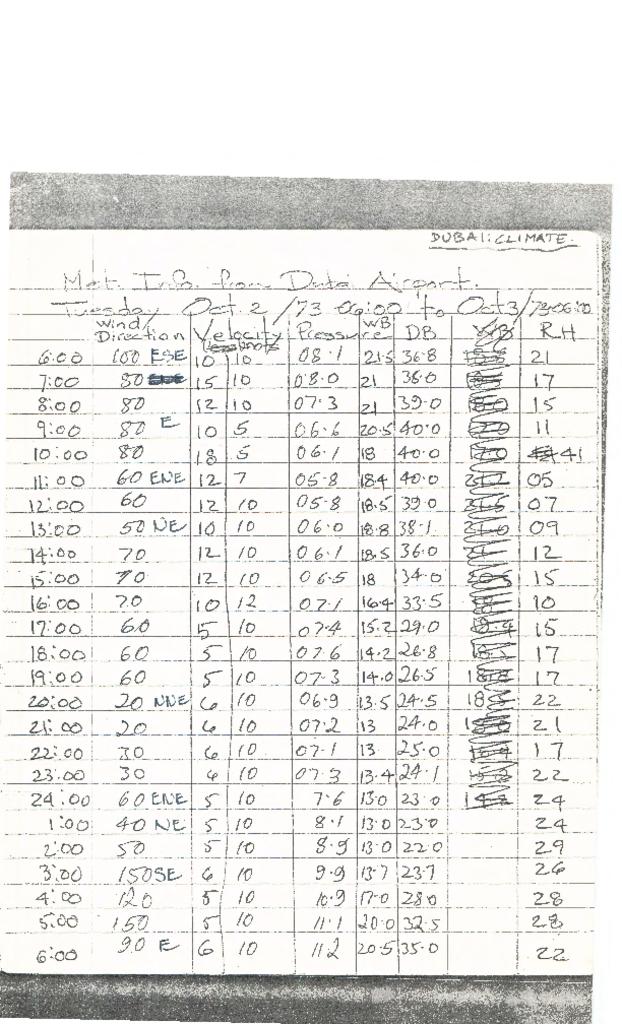 DUBAI: CLIMATE.
Met. Info. from Dubai Airport.
Tuesday Oct 2 /73 06:00 to Oct 3/73-06:00
Wind Direction Velocity Pressure WB DB RH
6:00 100 ESE 10 10 08.1 21.5 36.8 21
7:00 80 15 10 08.0 21 36.0 17
8:00 80 12 10 07.3 21 39.0 15
9:00 80 E 10 5 06.6 20.5 40.0 11
10:00 80 18 5 06.1 18 40.0 41
11:00 60 ENE 12 7 05.8 18.4 40.0 05
12:00 60 12 10 05.8 18.5 39.0 07
13:00 50 NE 10 10 06.0 18.8 38.1 09
14:00 70 12 10 06.1 18.5 36.0 12
15:00 70 12 10 06.5 18 34.0 15
16:00 70 10 12 07.1 16.4 33.5 10
17:00 60 5 10 07.4 15.2 29.0 15
18:00 60 5 10 07.6 14.2 26.8 17
19:00 60 5 10 07.3 14.0 26.5 17
20:00 20 NNE 6 10 06.9 13.5 24.5 22
21:00 20 6 10 07.2 13 24.0 21
22:00 30 6 10 07.1 13 25.0 17
23:00 30 6 10 07.3 13.4 24.1 22
24:00 60 ENE 5 10 7.6 13.0 23.0 24
1:00 40 NE 5 10 8.1 13.0 23.0 24
2:00 50 5 10 8.9 13.0 22.0 29
3:00 150 SE 6 10 9.9 13.7 23.7 26
4:00 120 5 10 10.9 17.0 28.0 28
5:00 150 5 10 11.1 20.0 32.5 28
6:00 90 E 6 10 11.2 20.5 35.0 22